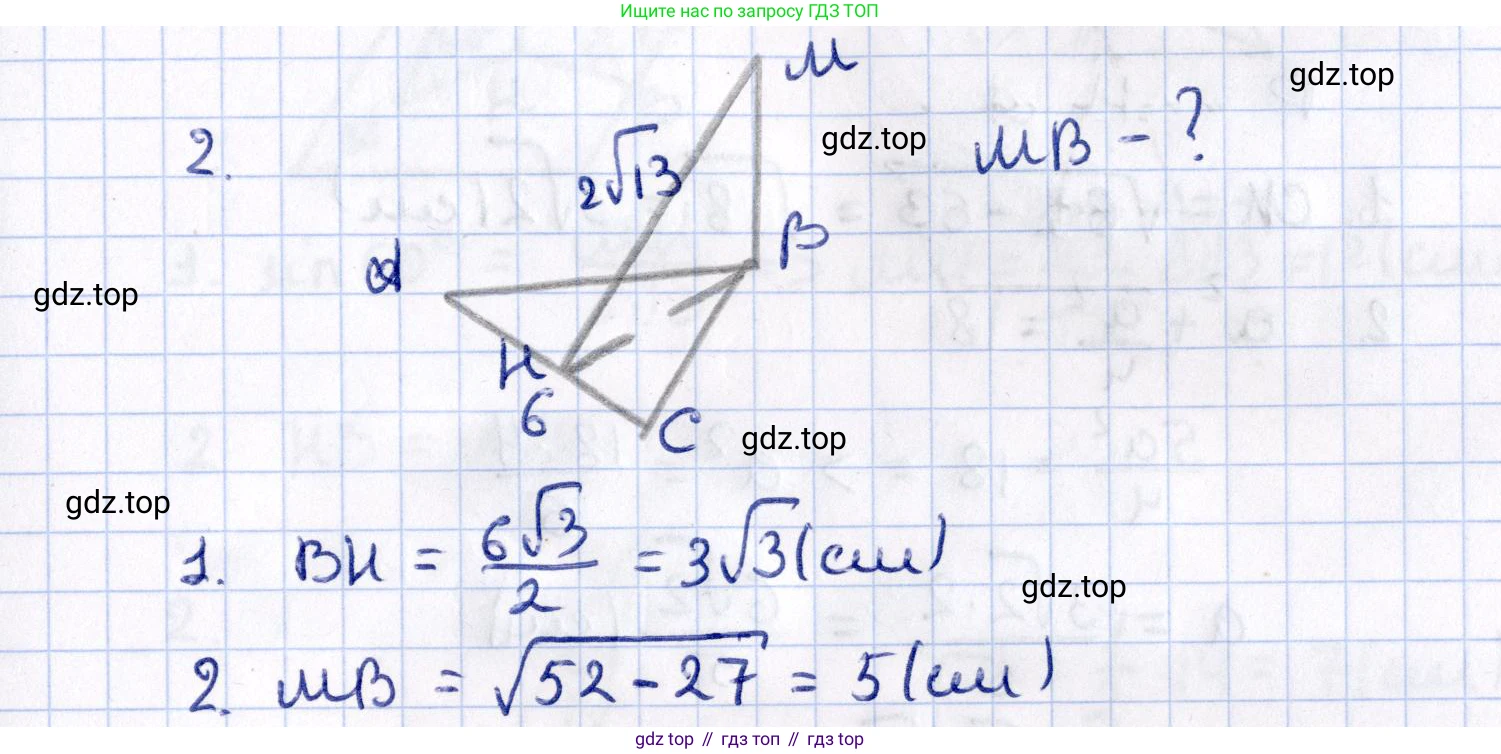 Ищите нас по запросу ГДЗ ТОП
M
gdz.top
gdz.top
MB - ?
2.
2√13
B
A
gdz.top
H
6
C
gdz.top
gdz.top
1. BH = 6√3/2 = 3√3 (см)
gdz.top
2. MB = √52 - 27 = 5 (см)
gdz top // гдз топ // гдз top